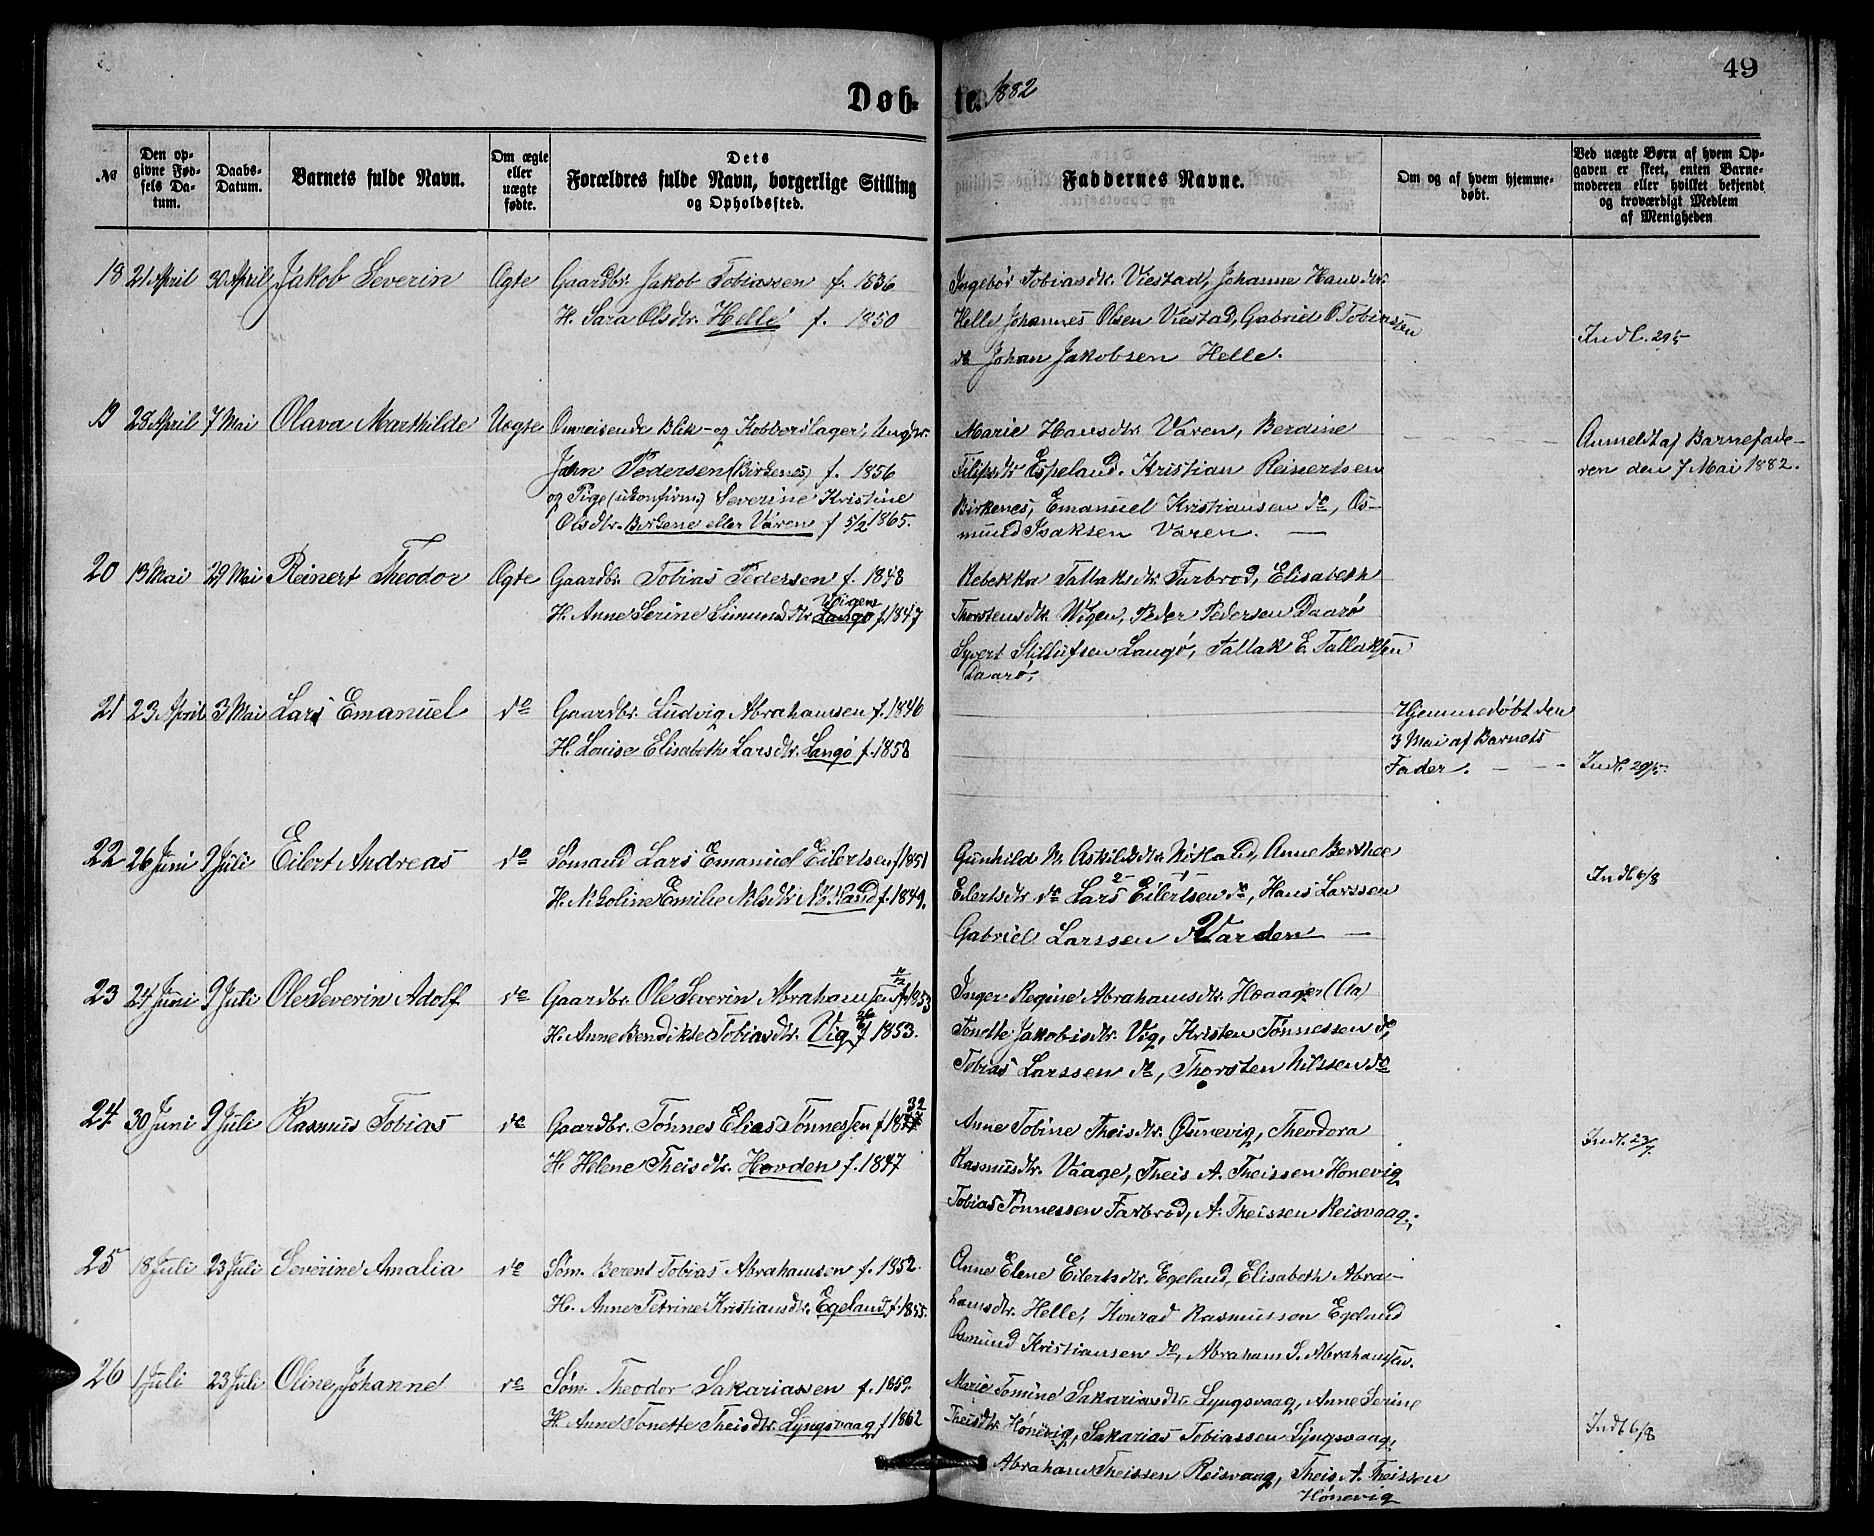 49
Døb- te. 1882
№
Den op-
givne Fød-
sels Da-
tum.
Daabs-
Datum.
Barnets fulde Navn.
Om ægte
eller
uægte
fødte.
Dets
Forældres fulde Navn, borgerlige Stilling
og Opholdssted.
Faddernes Navne.
Om og af hvem hjemme-
døbt.
Ved uægte Børn af hvem Op-
gaven er skeet, enten Barne-
moderen eller hvilket bekjendt
og troværdigt Medlem
af Menigheden
18 21 April 30 April Jakob Severin Ægte
Gaardbr. Jakob Tobiassen f. 1836
H. Sara Olsdtr. Helle f. 1850
Ingebor Tobiasdtr. Viestad, Johanne Hansdtr.
Helle Johannes Olsen Viestad, Gabriel O Tobiassen
do Johan Jakobsen Helle.
Indl. 29/5
19 28 April 7 Mai Olava Marthilde Uægte
Omreisende Blik- og Kobberslager, Ungkr.
John Pedersen (Birkenes) f. 1856
og Pige (ukonfirm.) Severine Kristine
Olsdtr. Birkene eller Våren f 5/2 1865.
Marie Hansdtr Våren, Berdine
Filipsdtr Espeland. Kristian Reinertsen
Birkenes, Emanuel Kristiansen do, Os-
mund Isaksen Våren.
Anmeldt af Barnefade-
ren den 7 Mai 1882.
20 13 Mai 29 Mai Reinert Theodor Ægte
Gaardbr. Tobias Pedersen f. 1848
H. Anne Serine Simonsdtr Langø f. 1847
Wigen
Rebekka Tallaksdtr Farbrod, Elisabeth
Thorstensdtr Wigen, Peder Pedersen Daarø
Syvert Langø, Tallak E. Tallaksen
Daarø.
21 23 April 3 Mai Lars Emanuel do
Gaardbr. Ludvig Abrahamsen f. 1846
H. Louise Elisabeth Larsdtr. Langø f. 1858
Hjemmedøbt den
3 Mai af Barnets
Fader.
Indl. 29/5
22 26 Juni 9 Juli Eilert Andreas do
Sømand Lars Emanuel Eilertsen f 1851
H. Nikoline Emilie Nilsdtr f. 1849.
Gunhild M Askilsdtr. Anne Berthee
Eilertsdtr do Lars Eilertsen do, Hans Larssen
Gabriel Larssen Varden
Indl 6/8
23 24 Juni 9 Juli Ole Severin Adolf do
Gaardbr. Ole Severin Abrahamsen f. 1853
H. Anne Bendikte Tobiasdtr. Vig f 1853.
Inger Regine Abrahamsdtr. Haager (Aa)
Tonette Jakobsdtr. Vig, Kristen Tønnessen do,
Tobias Larssen do, Thorsten Nilssen do
24 30 Juni 9 Juli Rasmus Tobias do
Gaardbr. Tønnes Elias Tønnessen f 1832
H. Helene Theisdtr. Hovden f. 1847
Anne Tobine Theisdtr. Theodora
Rasmusdtr. Vaage, Theis A. Theissen Hønevig
Tobias Tønnessen Farbrod, A. Theissen Reisvaag.
Indl. 23/7
25 18 Juli 23 Juli Severine Amalia do
Søm. Berent Tobias Abrahamsen f. 1852.
H. Anne Petrine Kristiansdtr. Egeland f. 1855.
Anne Elene Eilertsdtr. Egeland, Elisabeth Abra-
hamsdtr. Helle, Konrad Rasmusson Egeland
Osmund Kristiansen do, Abraham S. Abrahamsen.
26 1 Juli 23 Juli Oline Johanne do
Søm. Theodor Sakariassen f. 1859.
H. Anne Tonette Theisdtr. Lyngsvaag f 1862
Marie Tomine Sakariasdtr. Lyngsvaag, Anne Serine
Theisdtr. Hønevig, Sakarias Tobiassen Lyngsvaag,
Abraham Theissen Reisvaag, Theis A. Theissen
Hønevig
Indl 6/8